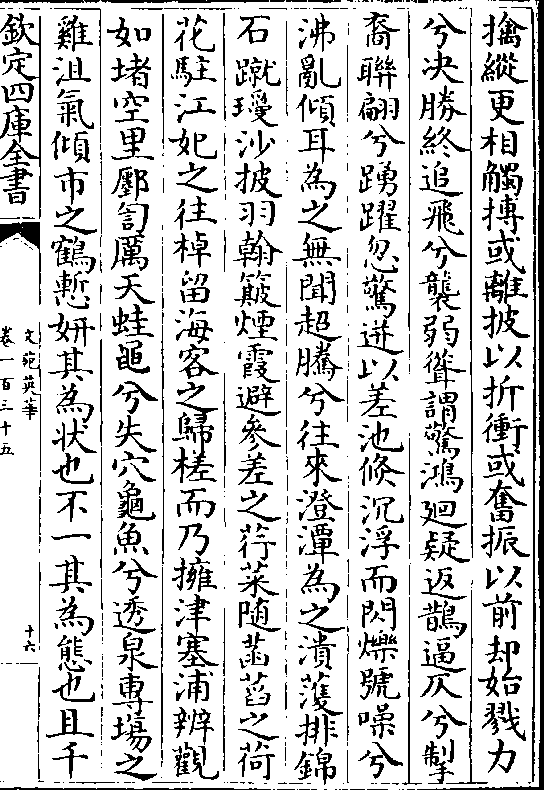 擒縱更相觸搏或離披以折衝或奮振以前却始戮力
兮决勝終追飛兮襲弱聳謂驚鴻迴疑返鵲逼仄兮掣
裔聯翩兮踴躍忽驚迸以差池倐沉浮而閃爍號噪兮
沸亂傾耳為之無聞超騰兮往來澄潭為之潰濩排錦
石蹴瓊沙披羽翰簸煙霞避參差之荇菜随菡萏之荷
花駐江妃之往棹留海客之歸槎而乃擁津塞浦辨觀
如堵空里鄽訇厲天蛙黽兮失穴龜魚兮透泉専場之
雞沮氣傾市之鶴慙妍其為状也不一其為態也且千
欽定四庫全書
文苑英華
卷一百三十五
十六